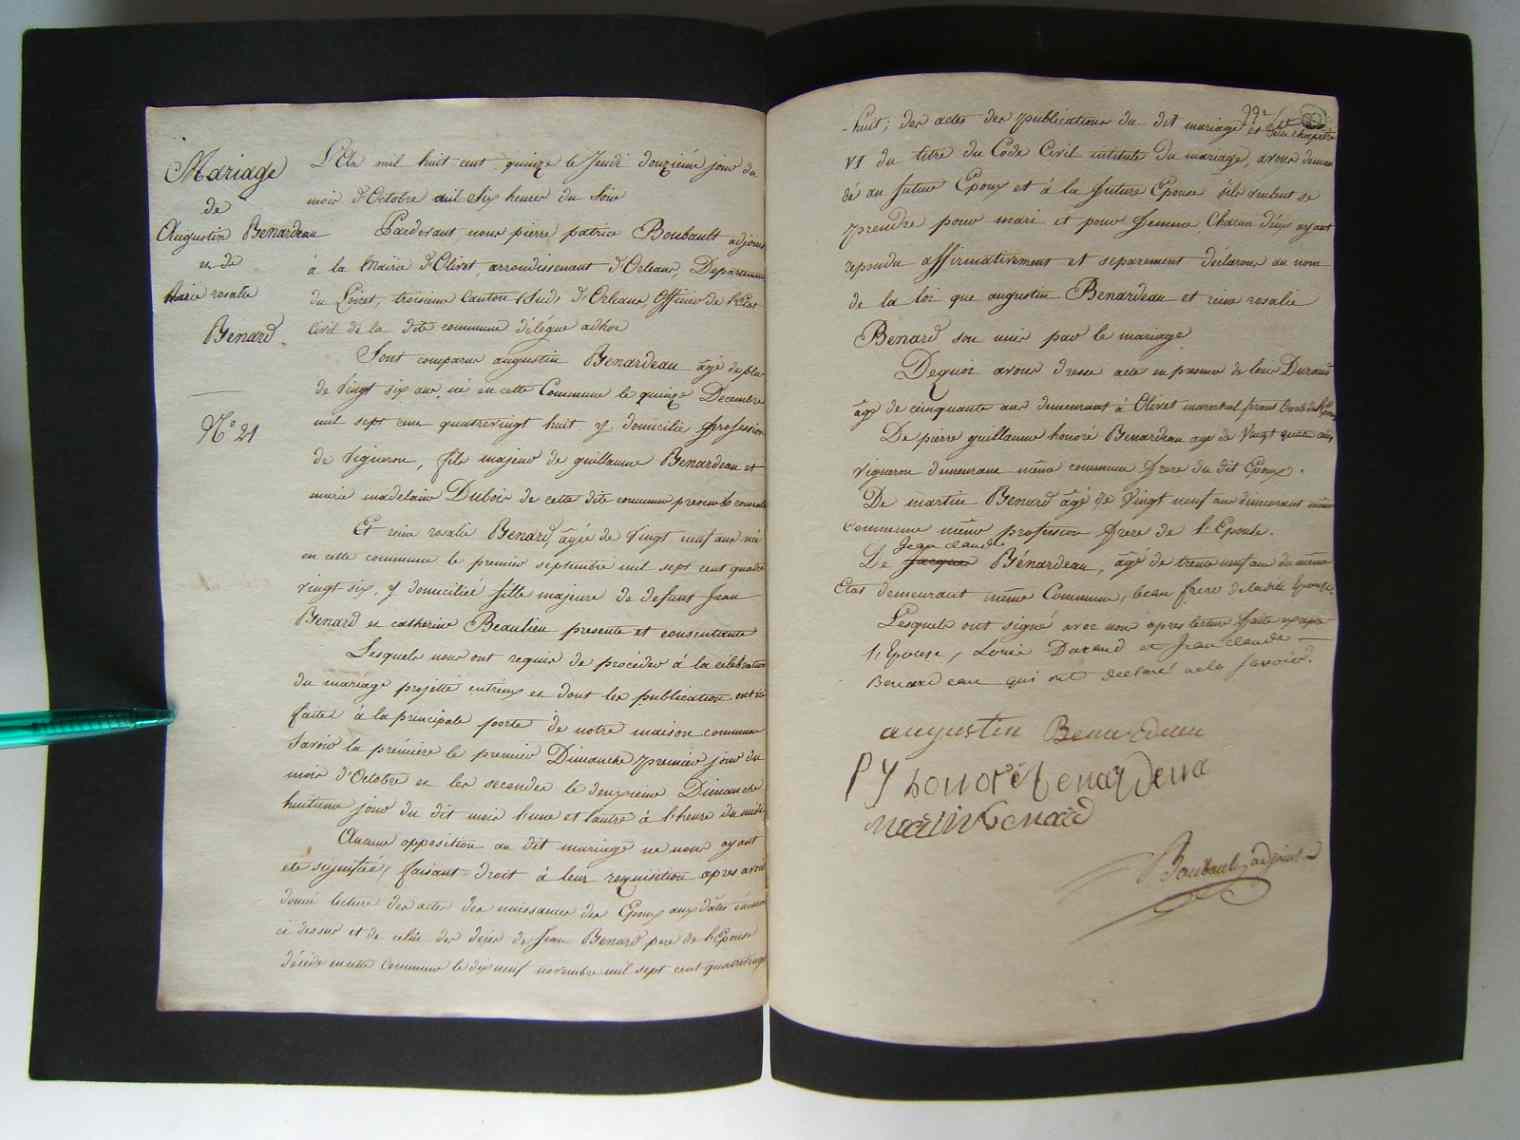 Mariage
de
Augustin Benardeau
et de
rosalie
Benard.
N.º 21
L'An mil huit cent quinze le Jeudi douzième jour du
mois d'Octobre Six heures du Soir
Pardevant nous pierre patrice Boubault adjoint
à la Mairie d'Olivet, arrondissement d'Orleans, Departement
du Loiret, troisieme Canton (Sud) d'Orleans, Officier de l'Etat
Civil de la dite commune délégué adhoc
Sont comparus augustin Benardeau âgé de plus
de Vingt six ans, né en cette Commune le quinze Decembre
mil sept cent quatrevingt huit y domicilié profession
de Vigneron, fils majeur de guillaume Benardeau et
marie madelaine Dubois de cette dite commune
Et reine rosalie Benard, agée de Vingt neuf ans née
en cette commune le premier septembre mil sept cent quatre
vingt six, y domiciliée fille majeure de defunt Jean
Benard et catherine Beaulieu presente et consentante
Lesquels nous ont requis de procéder à la célébration
du mariage projetté entr'eux et dont les publications ont été
faites à la principale porte de notre maison commune
Savoir la première le premier Dimanche premier jour du
mois d'Octobre et la seconde le deuxième Dimanche
huitieme jour du dit mois l'une et l'autre à l'heure de midi
Aucune opposition au dit mariage ne nous ayant
été signifiée, faisant droit à leur requisition apres avoir
donné lecture des actes des naissances des Epoux aux dates
ci dessus et de celui des décès de Jean Benard pere de l'Epouse
décédé en cette commune le dix neuf novembre mil sept cent quatrevingt
huit; des actes des publications du dit mariage et du chapitre
VI du titre du Code Civil intitulé du mariage, avons deman
dé au futur Epoux et à la future Epouse s'ils veulent se
prendre pour mari et pour femme, chacun d'eux ayant
repondu affirmativement et separement déclarons au nom
de la loi que augustin Benardeau et reine rosalie
Benard son unis par le mariage
Dequoi avons dressé acte en presence de Louis Durand
âgé de cinquante ans demeurant à Olivet marechal
De pierre guillaume honoré Benardeau agé de Vingt ans
vigneron demeurant même commune frere du dit Epoux.
De martin Benard âgé de Vingt neuf ans demeurant même
commune même profession frere de l'Epouse.
Jean claude
De Jacques Bénardeau, âgé de trente neuf ans du même
Etat demeurant même Commune, beau frere de ladite Epouse.
Lesquels ont signé avec nous apres lecture faite excepté
l'Epouse, Louis Durand et Jean claude
Benardeau qui ont déclaré ne le savoir.
augustin Benardeau
P g honoré benardeau
martin benard
Boubault adjoint